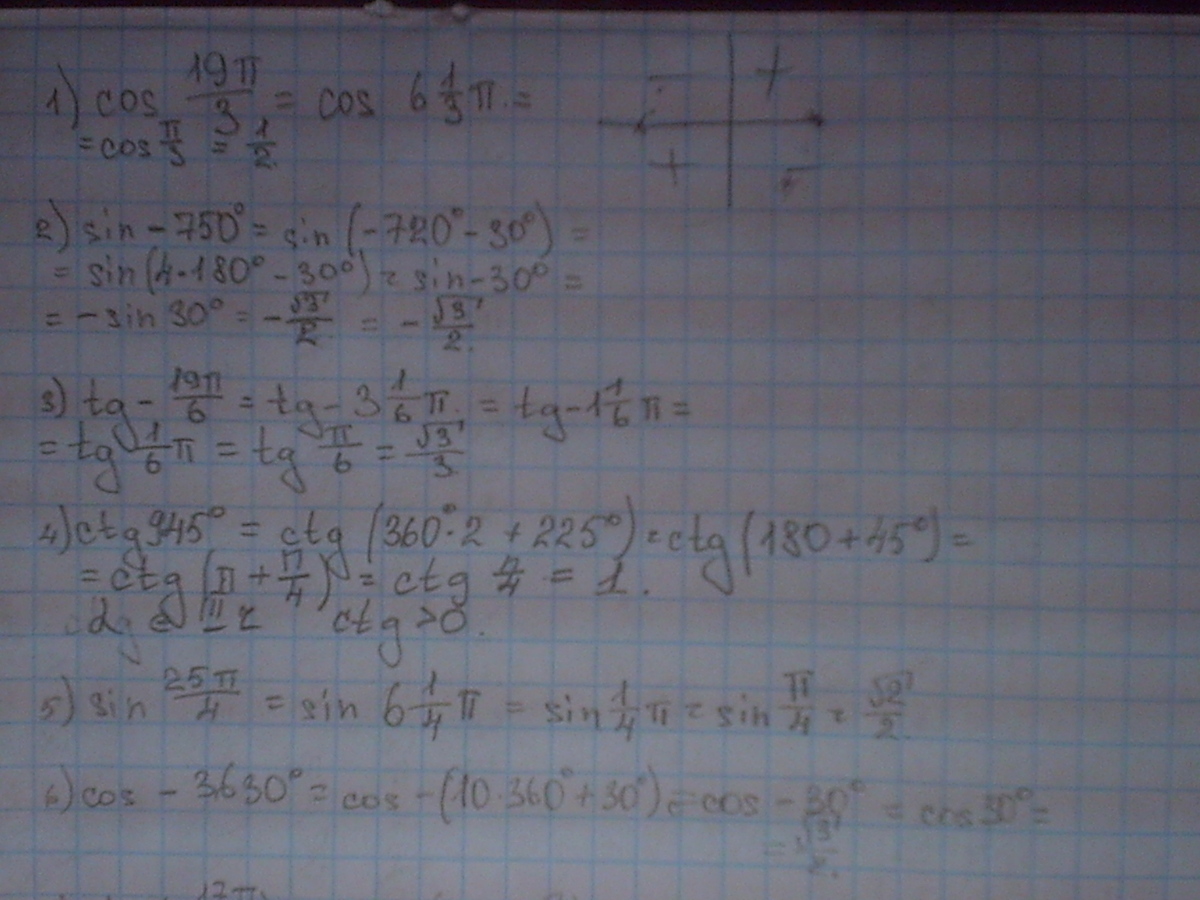 1) cos 19π/3 = cos 6 1/3 π =
= cos π/3 = 1/2
− +
+ −
2) sin − 750° = sin (−720° − 30°) =
= sin(4·180° − 30°) = sin − 30° =
= − sin 30° = − √3/2 = − √3/2.
3) tg − 19π/6 = tg − 3 1/6 π. = tg − 1 1/6 π =
= tg 1/6 π = tg π/6 = √3/3
4) ctg 945° = ctg (360°·2 + 225°) = ctg (180 + 45°) =
= ctg (π + π/4) = ctg π/4 = 1.
ctg > 0.
5) sin 25π/4 = sin 6 1/4 π = sin 1/4 π = sin π/4 = √2/2
6) cos − 3630° = cos − (10·360° + 30°) = cos − 30° = cos 30° =
= √3/2.
17π